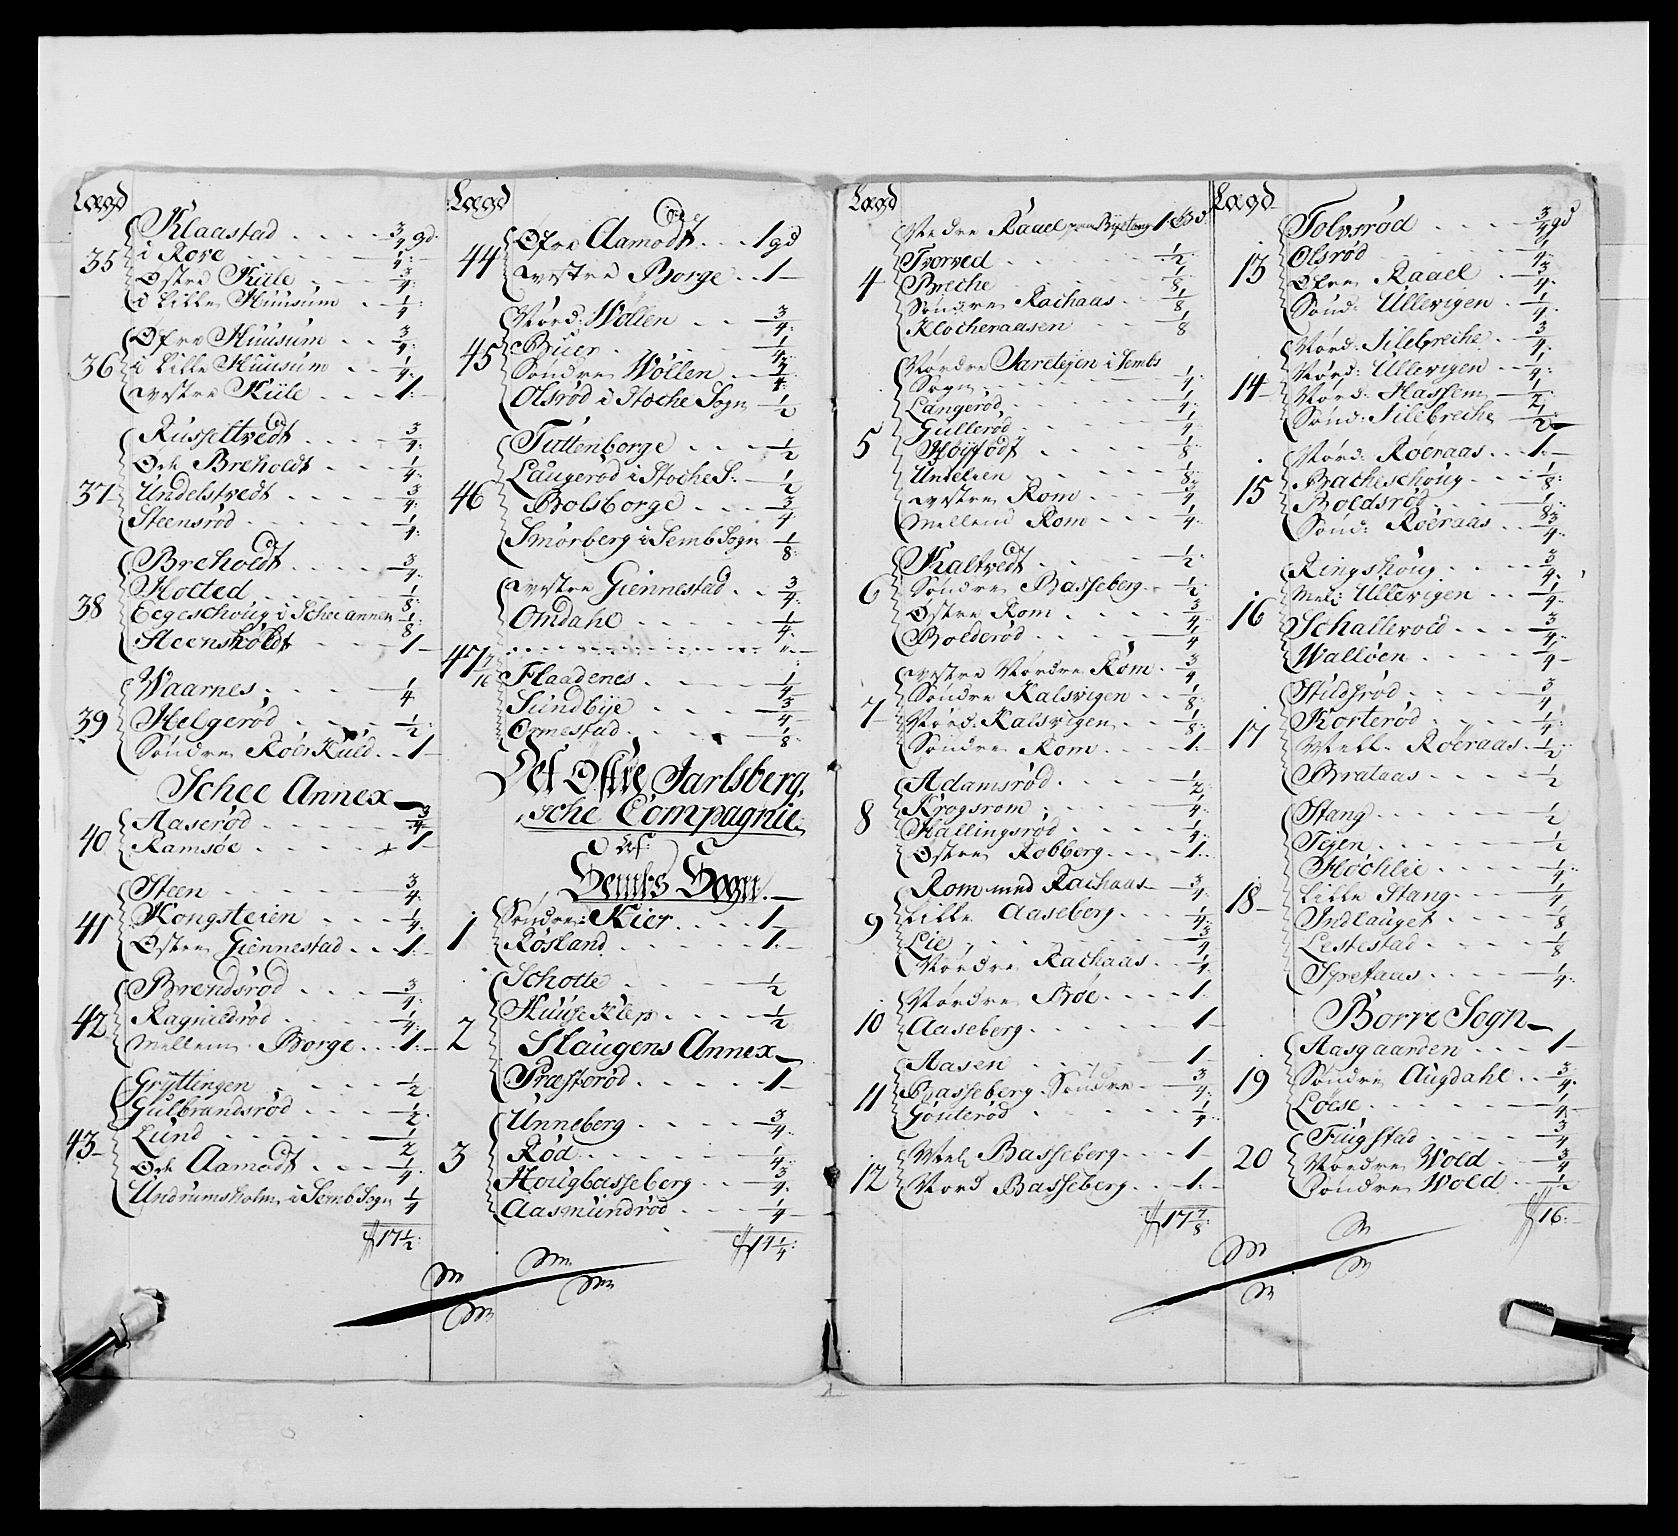 Lægd
Klaastad . . . . 3/4 gd
35 i Rove . . . . 1/4
Østre Kiile . . . 3/4
i Lille Huusum . . 1/4
Øfre Huusum . . 3/4
36 i Lille Huusum . . 1/4
westre Kiile . . . 1
Russeltvedt . . . . 3/4
Breholdt . . . . 1/4
37 Undelstvedt . . . . 3/4
Steensrød . . . . 1/4
Breholdt . . . . 3/4
Hotted . . . . 1/8
38 Eegeschoug i Schee annex 1/8
Steensholdt . . . 1
Waarnes . . . . 1/4
39 Helgerød . . . . 1/2
Søndre Røes Kuld . . 1
Schee Annex
Aaserød . . . . 3/4
40 Ramsøe . . . . 1
Steen . . . . 3/4
41 Kongsteien . . . . 1/4
Østre Giennestad . . 1
Brendsrød . . . . 3/4
42 Ragnedrød . . . . 1/4
Mellem Borge . . 1
Gryttingen . . . . 1/2
Gulbrandsrød . . . . 1/2
43 Lund . . . . 1/2
Aamodt . . . . 1/4
Undrumsholm i Semb Sogn 1/4
17 1/2
Lægd
Øfre Aamodt . . . 1 gd
44 westre Borge . . 1
Nord: Wøllen . . . 3/4
45 Buer . . . . 1/4
Søndre Wøllen . . 1/4
Olsrød i Stoche Sogn 1/2
Tuttenborge . . . 1/2
Laugerød i Stoche S: 1/2
46 Bolsborge . . . 3/4
Smørberg i Semb Sogn 1/8
westre Giennestad . . 3/4
Omdahl . . . . 1/4
47 7/16
Flaadenes . . . . 1/4
Sundbye . . . . 3/4
Ormestad . . . . 1/8
Det Østre Jarlsberg,
sche Compagnie
af
Sembs Sogn.
Søndre: Kier . . . . 1
1 Røsland . . . . 1
Schotte . . . . 1/2
2 Huuse Klep . . . 1/2
Slaugens Annex
Præsterød . . . . 1
Unneberg . . . . 3/4
3 Rød . . . . 1/4
Hougbasseberg . . 3/4
Aasmundrød . . . 1/4
14 1/4
Lægd
Nedre Raael 1 gd
Tverved . . . . 1/2
4 Breche . . . . 1/8
Søndre Rachaas . . 1/8
Klocheraasen . . . 1/8
Nordre Jareteien i Sembs
Sogn . . . . 1/4
Langerød . . . . 1/4
Gullerød . . . . 1/4
5 Høyfodt . . . . 1/8
Undelien . . . . 1/8
westre Rom . . . 3/4
Mellem Rom . . . 1/4
Kaltvedt . . . . 1/2
6 Søndre Basseberg . . 1/2
Østre Rom . . . 3/4
Bolderød . . . . 1/4
westre Nordre Rom . 3/4
Søndre Kalsvigen . . 1/8
7 Nord. Kalsvigen . . 1/8
Søndre Rom . . . . 1
Adamsrød . . . . 1/2
Krogsrom . . . . 1/4
8 Hallingsrød . . . . 1/4
Østre Robberg . . . . 1
Rom med Rachaas 3/4
9 Lille Aaseberg . . . 1/4
Lie . . . . 3/4
Nordre Rachaas . . 1/4
Nordre Bøe . . . . 1
10 Aaseberg . . . . 1
Aasen . . . . 1
11 Basseberg Søndre . . 3/4
Gouterød . . . . 1/4
Mel Basseberg . . . 1
12 Nord Basseberg . . 1
17 7/8
Lægd
Tolvsrød . . . . 3/4 gd
13 Olsrød . . . . 1/4
Øfre Raael . . . 3/4
Sønd. Ullevigen . . 1/4
Nord. Jilebreche . . 3/4
Nord: Ullevigen . . 1/4
14 Nord. Hassum . . 1/2
Sønd: Jilebreche 1/2
Nord. Røeraas . . . 1
Bacheschoug . . . 1/8
15 Boldsrød . . . . 1/8
Sønd: Røeraas . . . 3/4
Ringshoug . . . . 3/4
Mel: Ullevigen . . 1/4
16 Schallevold . . . . 3/4
Walløen . . . . 1/4
Stildsrød . . . . 3/4
Korterød . . . . 1/4
17 Mell. Røeraas . 1/2
Brataas . . . . 1/2
Stang . . . . 1/2
Teyen . . . . 1/2
Høchlie . . . . 1/4
18 Lille Stang . . . . 1/4
Indlauget . . . . 1/8
Lestestad . . . . 1/8
Spetaas . . . . 1/4
Borre Sogn
Aasgaarden . . . 1
19 Søndre Augdahl . . 3/4
Løese . . . . 1/4
Fuugstad . . . . 3/4
20 Nordre Wold . . 3/4
Søndre Wold . . 1/2
16